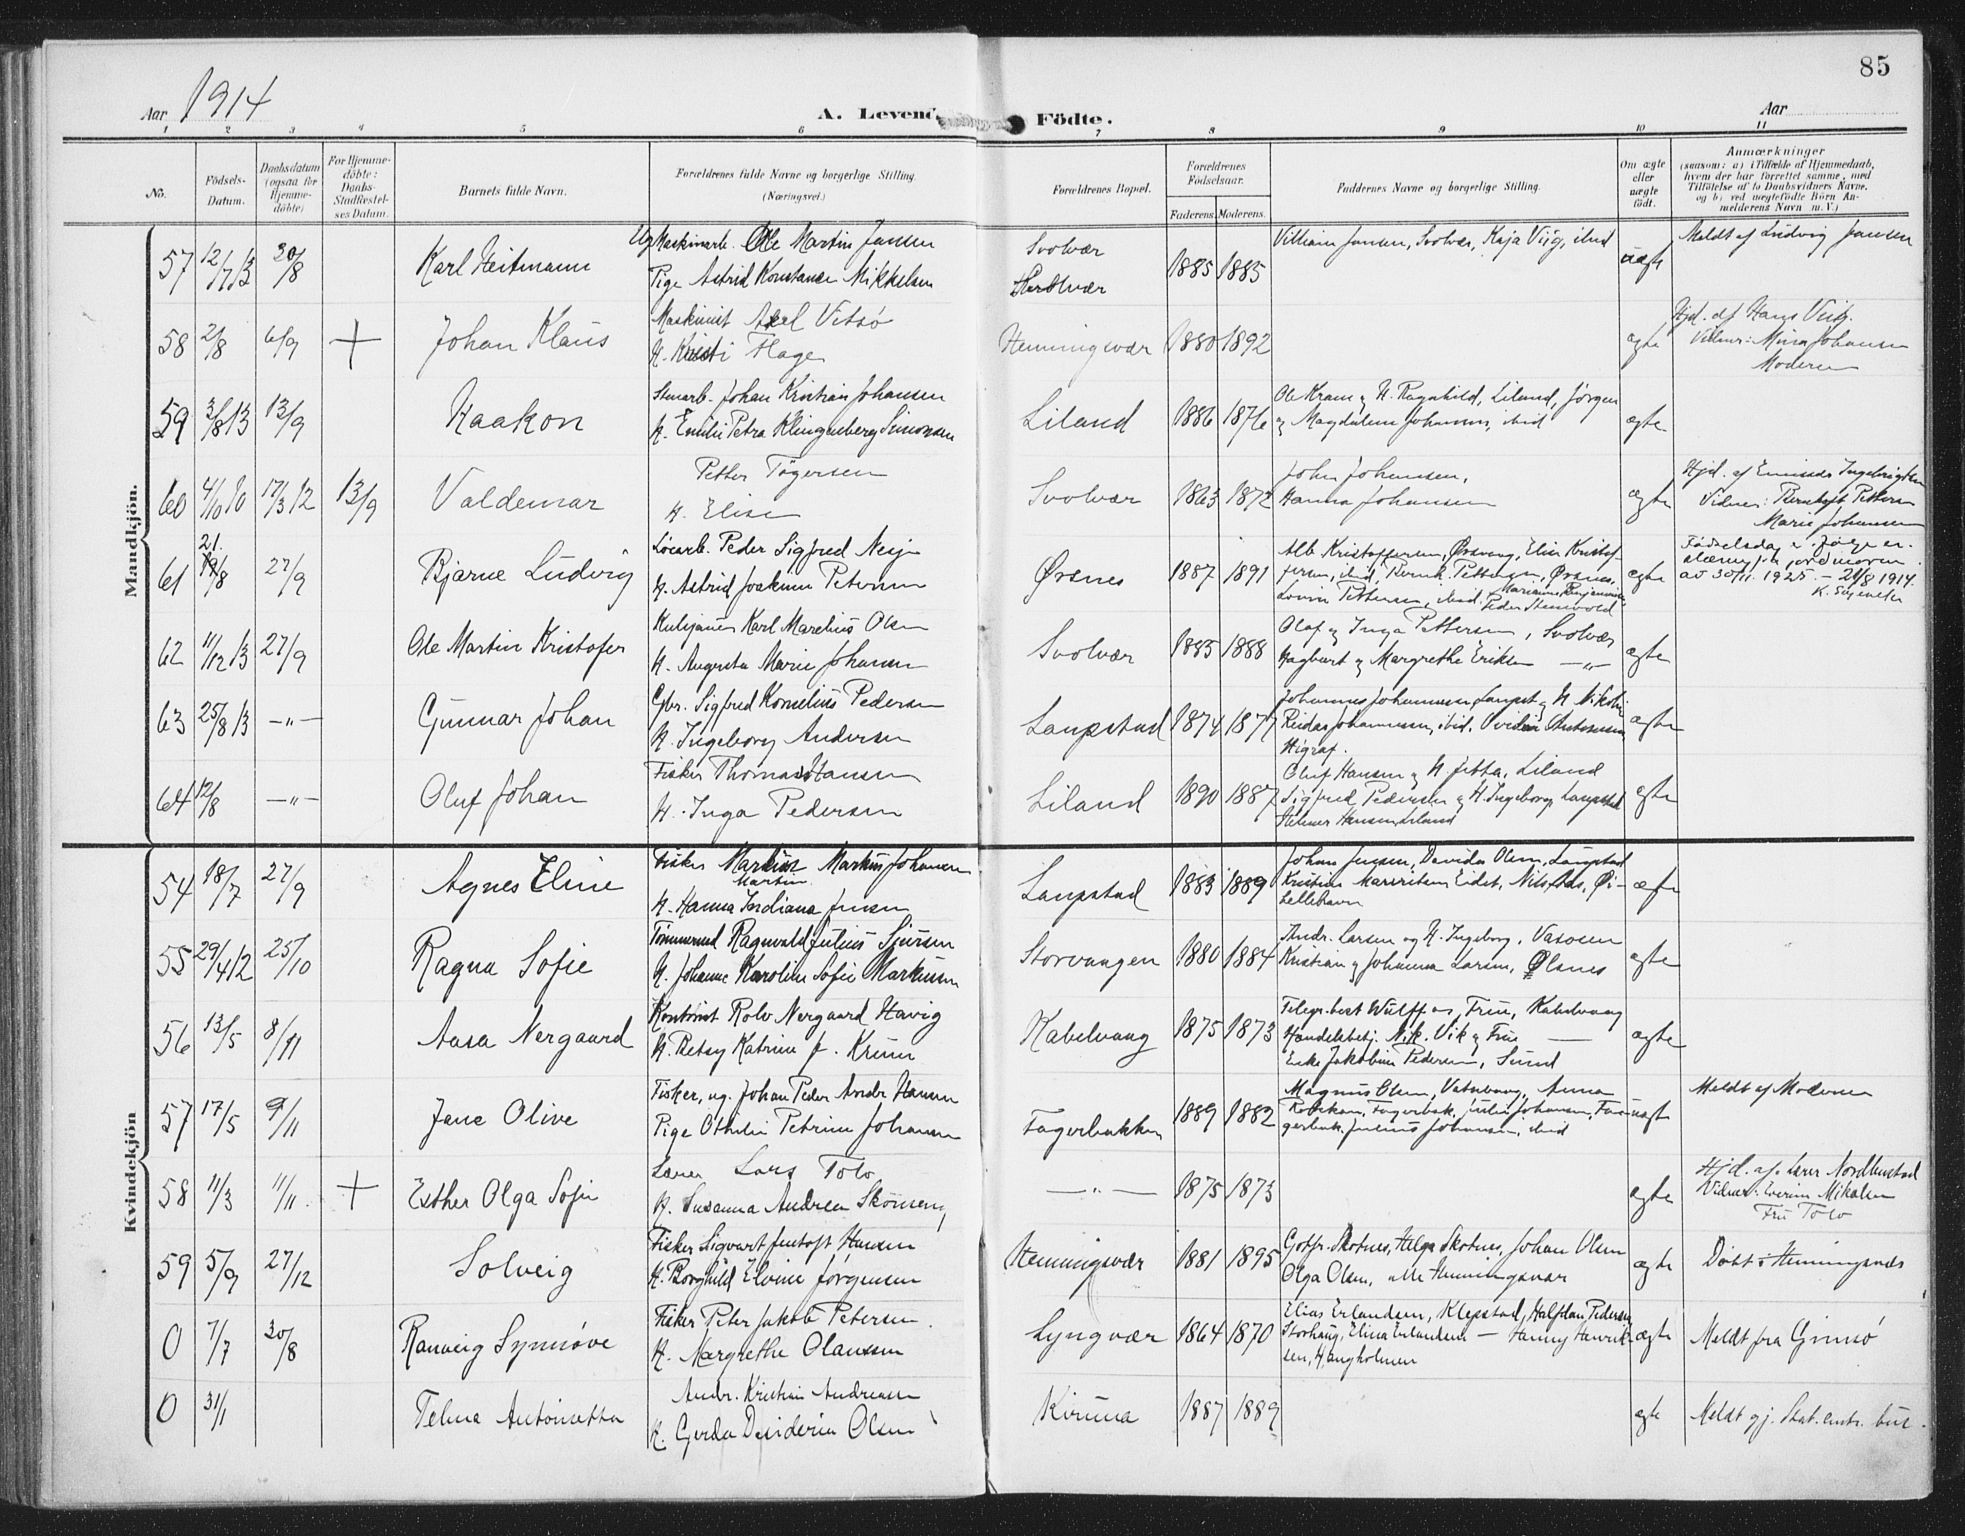 85
Aar 1914
A. Levende Födte.
Aar
1 2 3 4 5 6 7 8 9 10 11
No.
Födsels-Datum.
Daabsdatum (ogsaa for Hjemme-döbte)
For Hjemme-döbte: Daabs-Stadfæstel-ses Datum.
Barnets fulde Navn.
Forældrenes fulde Navne og borgerlige Stilling. (Næringsvei.)
Forældrenes Bopæl.
Forældrenes Födselsaar.
Faderens. Moderens.
Faddernes Navne og borgerlige Stilling.
Om ægte eller uægte födt.
Anmærkninger
(saasom: a) i Tilfælde af Hjemmedaab,
hvem der har forrettet samme, med
Tilföielse af to Daabsvidners Navne.
og b) ved uægtefödte Börn An-
melderens Navn m. V.)
Mandkjön.
57 12/7 13 30/8 Karl Heitmann
Ug. Maskinarb. Ole Martin Jansen
Pige Astrid Konstanse Mikkelsen
Svolvær
1885 1885
Vilhiam Jansen, Svolvær, Kaja Viig, ibid
uægte
Meldt af Ludvig Jansen
58 2/8 6/9 + Johan Klaus
Maskinist Axel Vitsø
H. Kristi Hage
Henningsvær 1880 1892
ægte
Hjd. af Hans Viig.
Vidner: Mina Johansen
Moderen
59 3/8 13 13/9 Haakon
Stenarb. Johan Kristian Johansen
H. Emilie Petra Klingenberg Simonsen
Liland 1886 1876
Ole Kram og H. Ragnhild, Liland, Jørgen
og Magdalena Johansen, ibid
ægte
60 4/10 10 17/3 12 13/9 Valdemar
Petter Tøgersen
H. Elise
Svolvær 1863 1872
John Johansen,
Hanna Johansen
ægte
Hjd. af Emissær Ingebrigtsen
Vidner: Petters
Marie Johansen
61 21. 19/8 27/9 Bjarne Ludvig
Løsarb. Peder Sigfred Nesje
H. Astrid Joakime Petersen
Ørsnes 1887 1891
Alb. Kristoffersen, Ørsvaag, Elise Kristof
fersen, ibid, Bernh. Pettersen, Ørsnes,
Lovise Pettersen, ibid. Marianne Benjaminsen
Peder Steinvold
ægte
Fødselsdag
av 30/11 1925. — 21/8 1914.
62 11/12 13 27/9 Ole Martin Kristofer
Karl Marelius Olsen
H. Augusta Marie Johansen
Svolvær 1885 1888
Olaf og Inga Pettersen, Svolvær
Hagbart og Margrethe Eriksen —"—
ægte
63 25/8 13 —"— Gunnar Johan
Gbr. Sigfred Kornelius Pedersen
H. Ingeborg Andersen
Laupstad 1874 1877
Johannes Johannessen, Laupst. og H. Nikoline
Reidar Johannessen, ibid,
Higrav.
ægte
64 12/8 —"— Oluf Johan
Fisker Thomas Hansen
H. Inga Pedersen
Liland 1890 1887
Oluf Hansen og H. Jetta, Liland
Sigfred Pedersen og H. Ingeborg, Laupstad
Helmer Hansen, Liland
ægte
Kvindekjön
54 18/7 27/9 Agnes Eline
Fisker Markus Johansen
Martin
H. Hanna Indiana Jensen
Laupstad 1883 1889
Johan Jensen, Davida Olsen, Laupstad
Eidet,
ægte
55 29/4 12 25/10 Ragna Sofie
Tømmermd Ragnvald Julius Sjursen
H. Johanne Karoline Sofie Markussen
Storvaagen 1880 1884
Andr. Larsen og H. Ingeborg,
Kristian og Johanna Larsen, Ølsnes
ægte
56 13/5 8/11 Aasa Nergaard
Kontorist Rolv Nergaard Havig
H. Betsy Katrine f. Krum
Kabelvaag 1875 1873
Telegr.best Wulff og Frue, Kabelvaag
Handelsbetj. Nik. Vik og Frue —
Enke Jakobine Pedersen, Sund
ægte
57 17/5 9/11 Jane Olive
Fisker, ug. Johan Peder Andr. Hansen
Pige Othilie Petrine Johansen
Fagerbakken 1889 1882
Magnus Olsen, Anna
Fagerbak. Julie Johansen, Fa
gerbak. Julius Johansen, ibid
uægt
Meldt af Moderen
58 11/3 11/11 + Esther Olga Sofie
Lærer Lars Tolo
H. Susanna Andrea
—"— 1875 1873
ægte
Hjd. af Lærer
Vidner: Mikalsen
Fru Tolo
59 5/9 27/12 Solveig
Fisker Sigvart Jentoft Hansen
H. Borghild Elvine Jørgensen
Henningsvær 1881 1895
Gotfr. Skotnes, Helga Skotnes, Johan Olsen
Olga Olsen, alle Henningsvær
ægte
Døbt i Henningsvær
0 7/7 30/8 Ranveig Synnøve
Fisker Peter Jakob Petersen.
H. Margrethe Olaussen
Lyngvær 1864 1870
Elias Erlandsen, Klepstad, Halfdan Pedersen
Storhaug, Elina Erlandsen — Hanny Henrik-
sen, Hangholmen
ægte
Meldt fra Gimsø
0 31/1 Telma Antonetta
Andr. Kristian Andreassen
H. Gerda Desideria Olsen
Kiruna 1887 1889
ægte
Meldt gj. Stat. centr. bur.